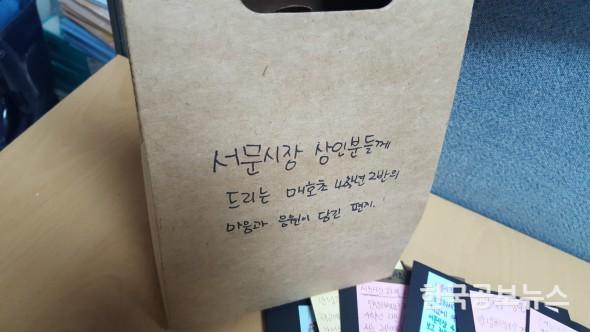 서문시장 상인분들께
드리는 매호초 4학년 2반의
마음과 응원이 담긴 편지.
한국공보뉴스